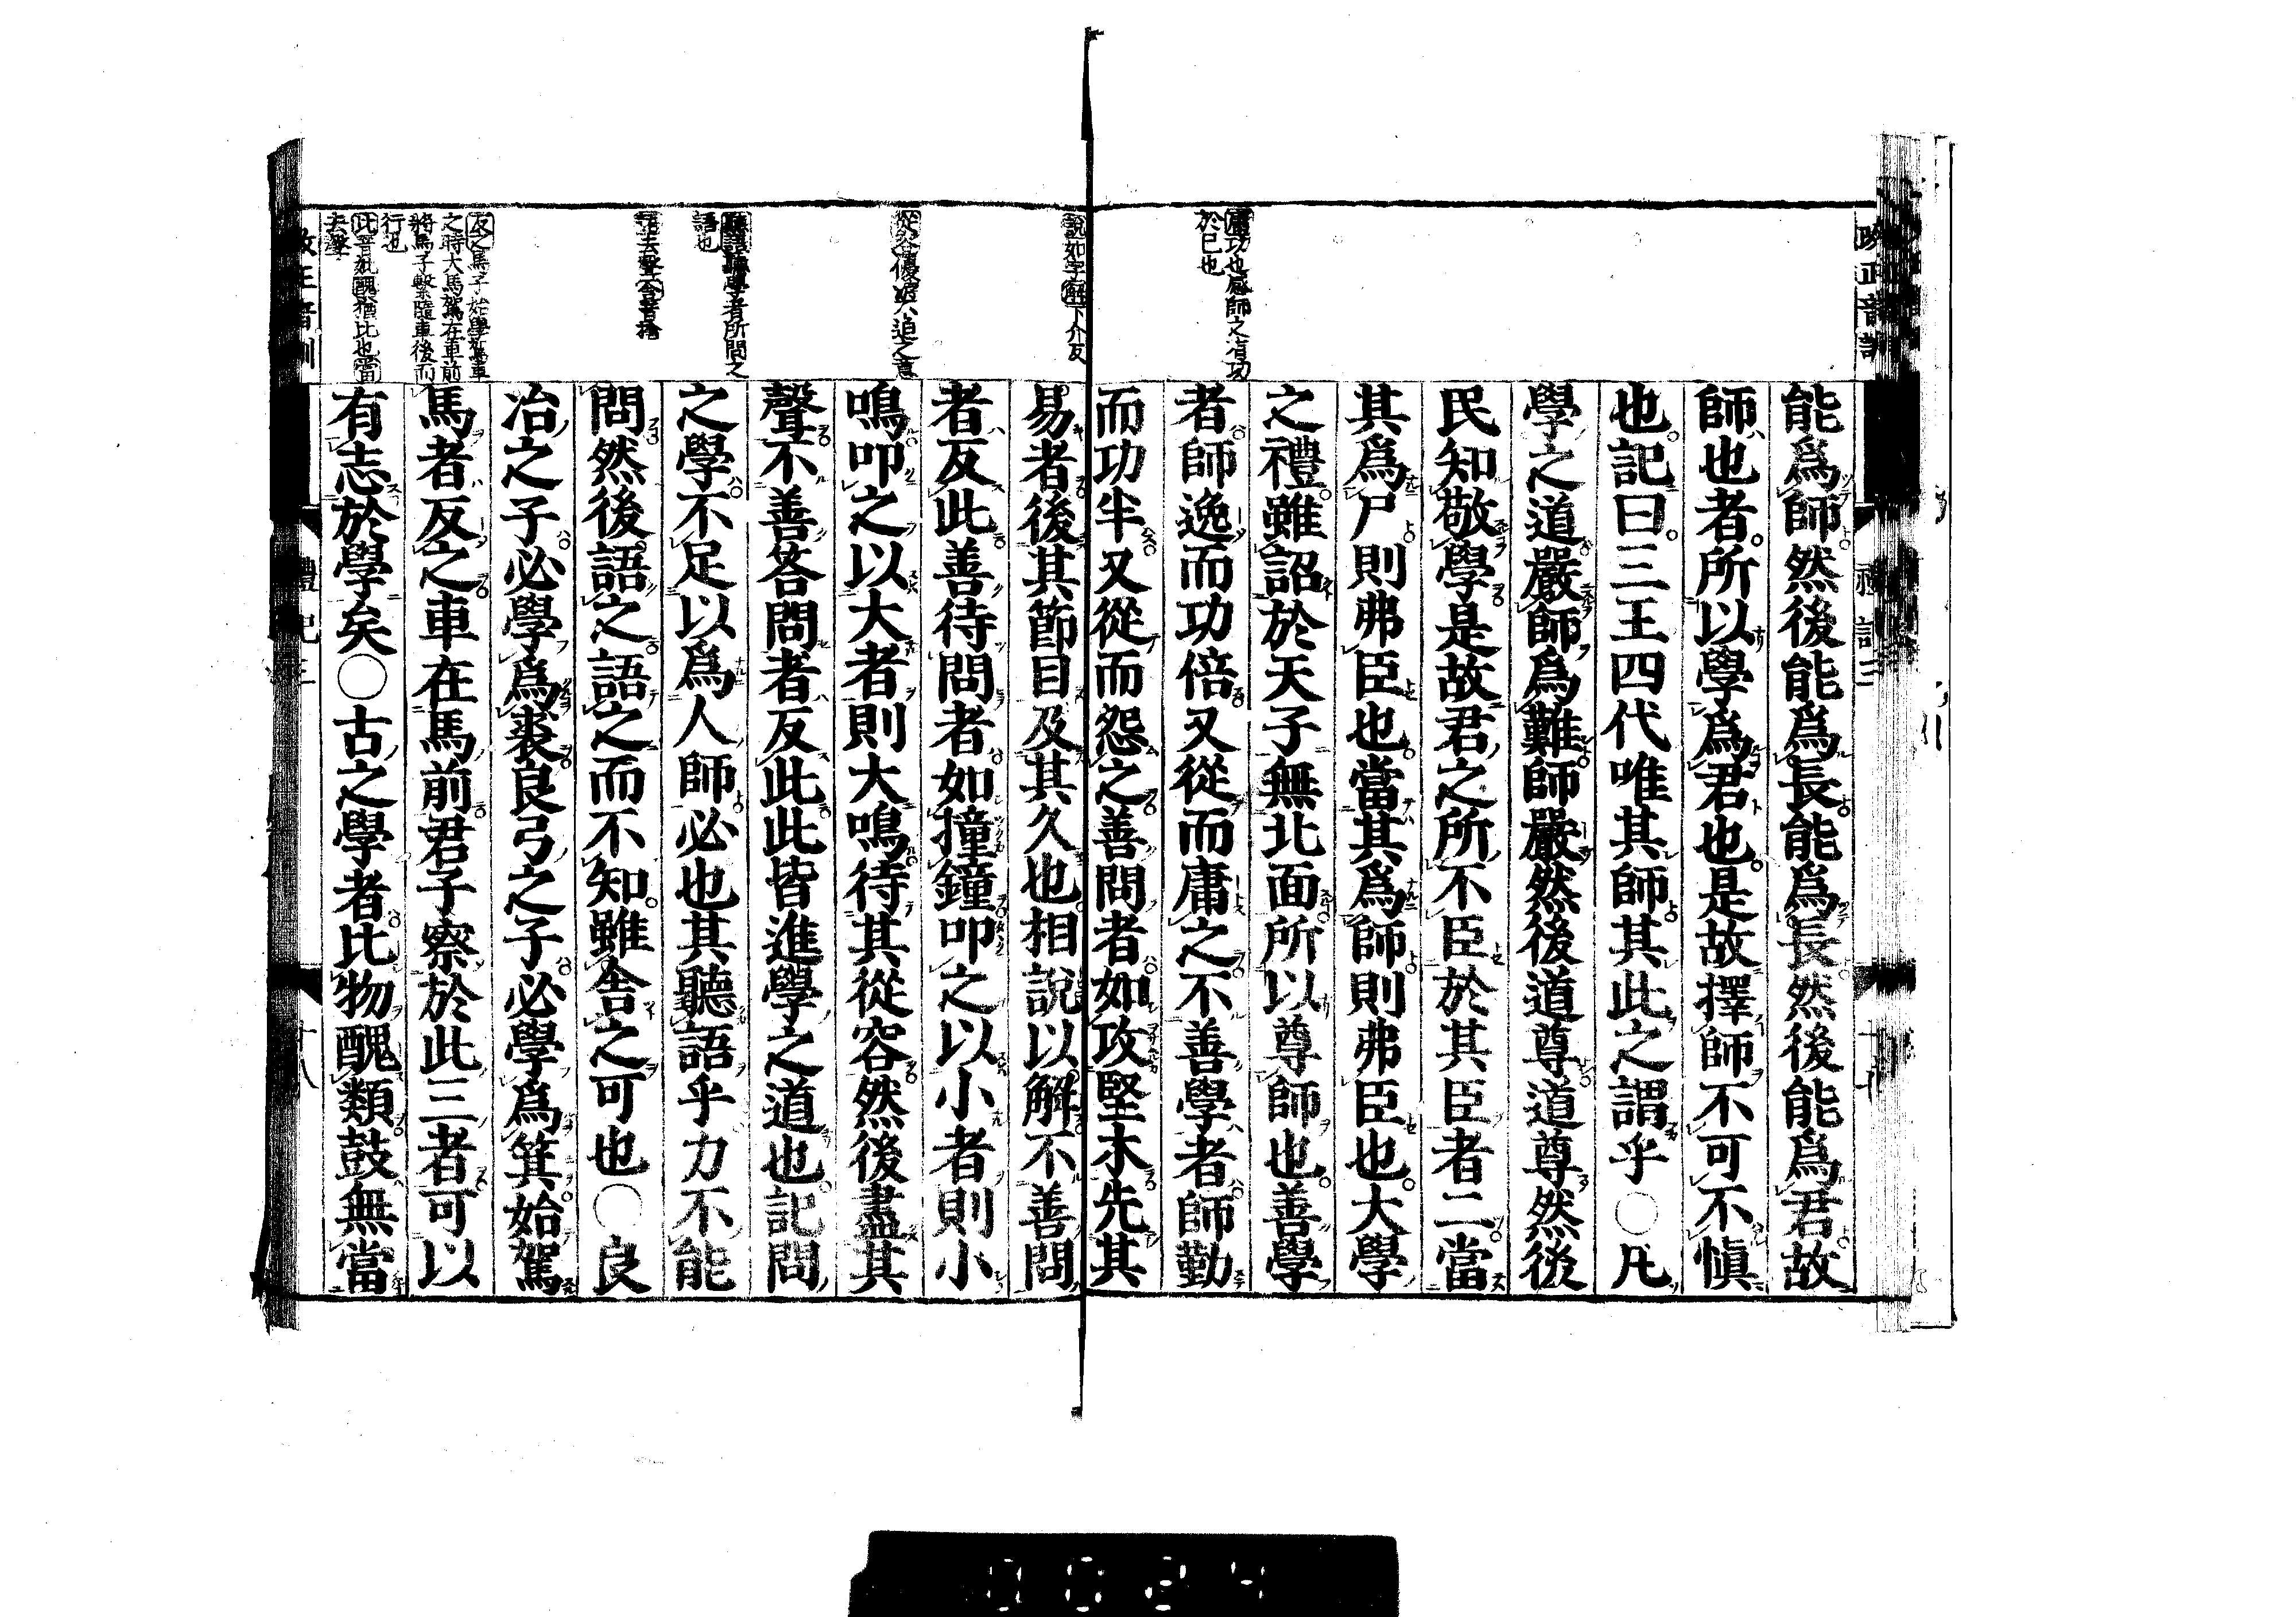 能爲師然後能爲長能爲長然後能爲君故
師也者所以學爲君也是故擇師不可不愼
也記曰三王四代唯其師其此之謂乎〇凡
學之道嚴師爲難師嚴然後道尊道尊然後
民知敬學是故君之所不臣於其臣者二當
其爲尸則弗臣也當其爲師則弗臣也大學
之禮雖詔於天子無北面所以尊師也善學
者師逸而功倍又從而庸之不善學者師勤
而功半又從而怨之善問者如攻堅木先其
易者後其節目及其久也相說以解不善問
者反此善待問者如撞鐘叩之以小者則小
鳴叩之以大者則大鳴待其從容然後盡其
聲不善答問者反此此皆進學之道也記問
之學不足以爲人師必也其聽語乎力不能
問然後語之語之而不知雖舍之可也〇良
冶之子必學爲裘良弓之子必學爲箕始駕
馬者反之車在馬前君子察於此三者可以
有志於學矣〇古之學者比物醜類鼓無當
庸功也感師之有功
於己也
說如字解下介反
從容優游不迫之意
聽語聽學者所問之
語也
語去聲舍音捨
反之馬子始學駕車
之時大馬駕在車前
將馬子繫隨車後而
行也
比音妣醜猶比也當
去聲
禮記三
十八
0024